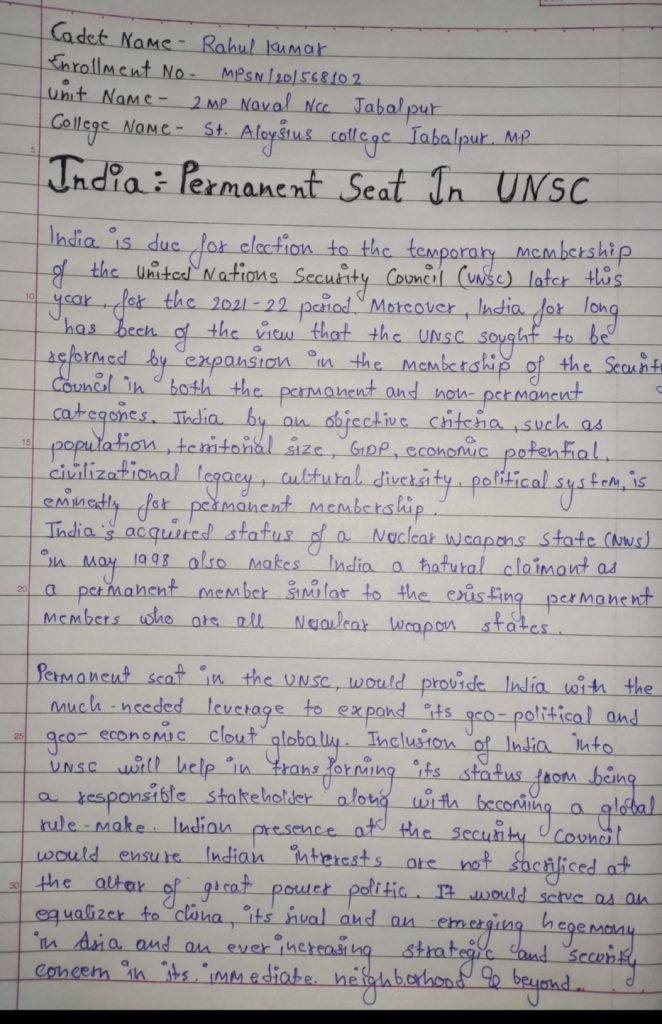 Cadet Name - Rahul Kumar
Enrollment No - MPSN/20/568102
Unit Name - 2 MP Naval Ncc Jabalpur
College Name - St. Aloysius college Jabalpur. MP
5
India :- Permanent Seat In UNSC
India is due for election to the temporary membership
of the United Nations Security Council (UNSC) later this
10
year, for the 2021-22 period. Moreover, India for long
has been of the view that the UNSC sought to be
reformed by expansion in the membership of the Securit
Council in both the permanent and non-permanent
categories. India by an objective criteria, such as
15
population, territorial size, GDP, economic potential,
civilizational legacy, cultural diversity, political system, is
eminently for permanent membership.
India's acquired status of a Nuclear Weapons State (NWS)
in May 1998 also makes India a natural claimant as
20
a permanent member similar to the existing permanent
members who are all Nuclear Weapon states.
Permanent seat in the UNSC, would provide India with the
much-needed leverage to expand its geo-political and
25
geo-economic clout globally. Inclusion of India into
UNSC will help in transforming its status from being
a responsible stakeholder along with becoming a global
rule-make. Indian presence at the security Council
would ensure Indian interests are not sacrificed at
30
the altar of great power politic. It would serve as an
equalizer to china, its rival and an emerging hegemony
in Asia and an ever increasing strategic and security
concern in its immediate neighborhood & beyond.